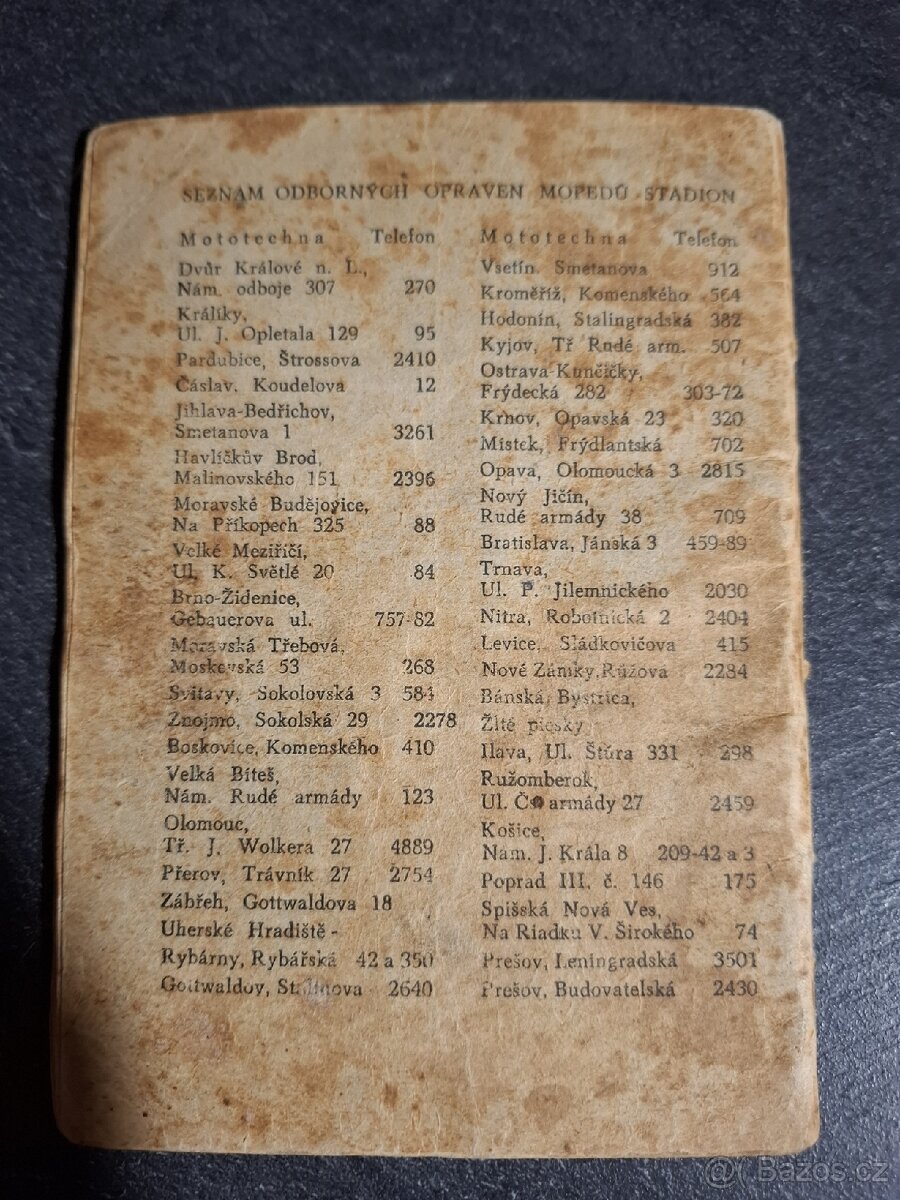 SEZNAM ODBORNÝCH OPRAVEN MOPEDŮ STADION
Mototechna Telefon
Dvůr Králové n. L.,
Nám. odboje 307 270
Králíky,
Ul. J. Opletala 129 95
Pardubice, Štrossova 2410
Čáslav, Koudelova 12
Jihlava-Bedřichov,
Smetanova 1 3261
Havlíčkův Brod,
Malinovského 151 2396
Moravské Budějovice,
Na Příkopech 325 88
Velké Meziříčí,
Ul. K. Světlé 20 84
Brno-Židenice,
Gebauerova ul. 757-82
Moravská Třebová,
Moskevská 53 268
Svitavy, Sokolovská 3 584
Znojmo, Sokolská 29 2278
Boskovice, Komenského 410
Velká Bíteš,
Nám. Rudé armády 123
Olomouc,
Tř. J. Wolkera 27 4889
Přerov, Trávník 27 2754
Zábřeh, Gottwaldova 18
Uherské Hradiště -
Rybárny, Rybářská 42 a 350
Gottwaldov, Stalinova 2640
Mototechna Telefon
Vsetín. Smetanova 912
Kroměříž, Komenského 564
Hodonín, Stalingradská 382
Kyjov, Tř Rudé arm. 507
Ostrava-Kunčičky,
Frýdecká 282 303-72
Krhov, Opavská 23 320
Místek, Frýdlantská 702
Opava, Olomoucká 3 2815
Nový Jičín,
Rudé armády 38 709
Bratislava, Jánská 3 459-89
Trnava,
Ul. P. Jilemnického 2030
Nitra, Robotnická 2 2404
Levice, Sládkovičova 415
Nové Zámky, Růžova 2284
Bánská, Bystrica,
Žlté piesky
Ilava, Ul. Štúra 331 298
Ružomberok,
Ul. Čs armády 27 2459
Košice,
Nam. J. Krála 8 209-42 a 3
Poprad III. č. 146 175
Spišská Nová Ves,
Na Riadku V. Širokého 74
Prešov, Leningradská 3501
Prešov, Budovatelská 2430
Bazoš.cz